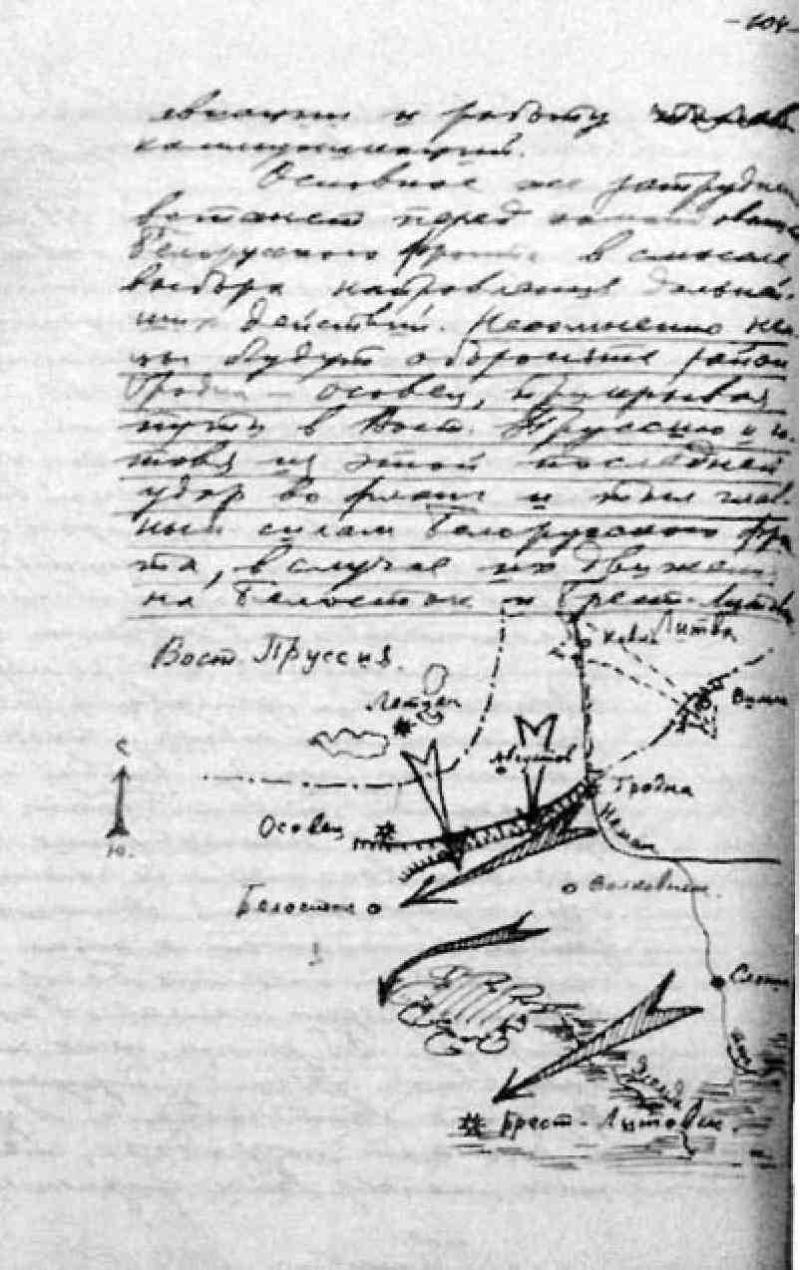 авиации и работу
коммуникаций.
Основное же затрудне
встанет перед командова
Белорусского фронта в смысле
выбора направления дальней-
ших действий. Несомненно нем
цы будут оборонять район
Гродна – Осовец, прикрывая
пути в Вост. Пруссию и го
товя из этой последней
удар во фланг и тыл глав-
ным силам Белорусского фро
та, в случае их движения
на Белосток и Брест-Литов
Ковно Литва
Вост. Пруссия.
Летцен Вильн
Августов
С
Гродна
Осовец Неман
Ю.
Волковыск
Белосток
Слоним
Брест-Литовск.